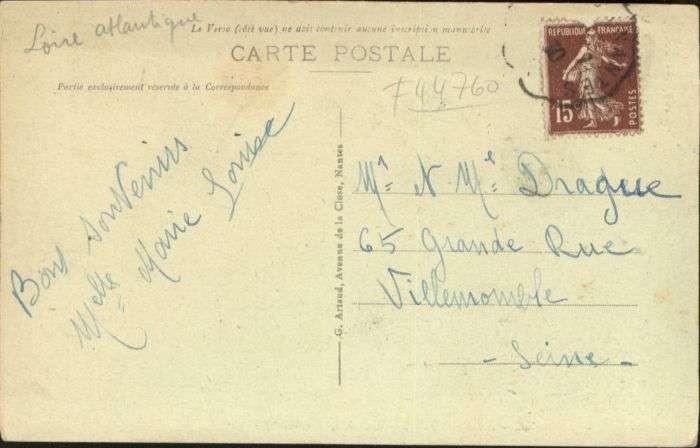 Loire atlantique
Le Verso (côté vue) ne doit contenir aucune inscription manuscrite
CARTE POSTALE
Partie exclusivement réservée à la Correspondance
F44760
REPUBLIQUE FRANÇAISE
15c
POSTES
Bons Souvenirs
Melle Marie Louise
G. Artaud, Avenue de la Close, Nantes
Mr N Me Drague
65 Grande Rue
Villemomble
- Seine -